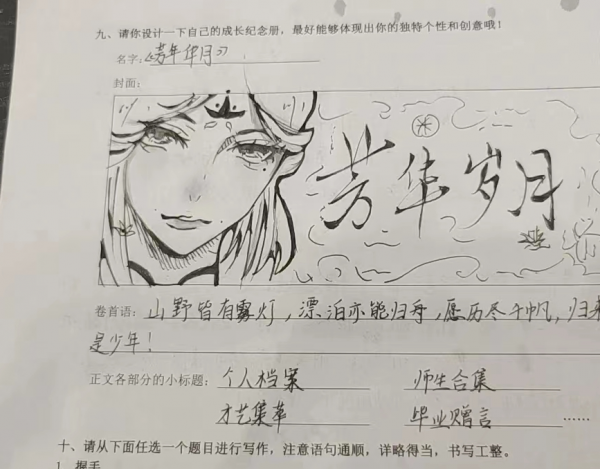 九、请你设计一下自己的成长纪念册，最好能够体现出你的独特个性和创意哦！
名字：《芳年华月》
封面：
芳华岁月
卷首语：山野皆有雾灯，漂泊亦能归舟，愿历尽千帆，归来
是少年！
正文各部分的小标题：个人档案 师生合集
才艺集萃 毕业赠言 ……
十、请从下面任选一个题目进行写作，注意语句通顺，详略得当，书写工整。
1. 握手